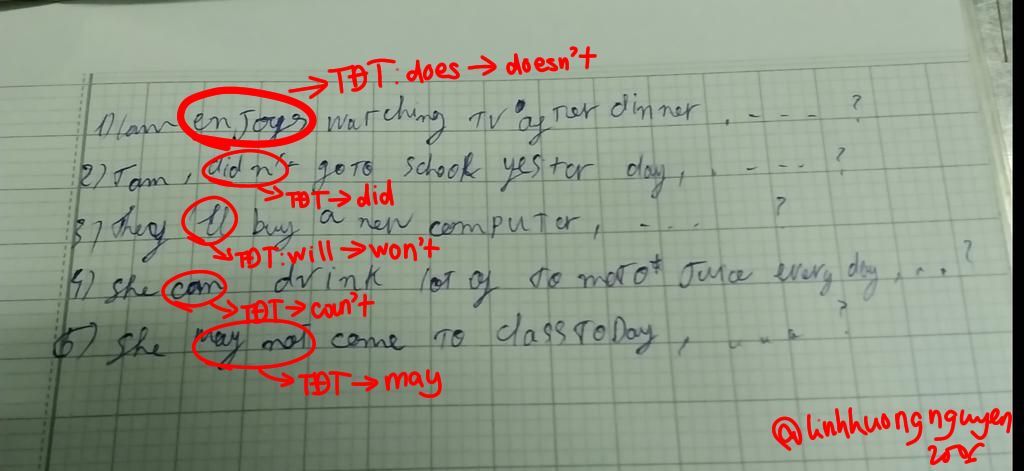 → TĐT: does → doesn't
1) Lam enjoys watching TV after dinner, ---- ?
2) Tam, didn't go to school yesterday, . --- ?
→ TĐT → did
3) They 'll buy a new computer, .... ?
→ TĐT: will → won't
4) She can drink lot of tomato Juice every day, ... ?
→ TĐT → can't
5) She may not come to class ToDay, .... ?
→ TĐT → may
@linhhuongnguyen